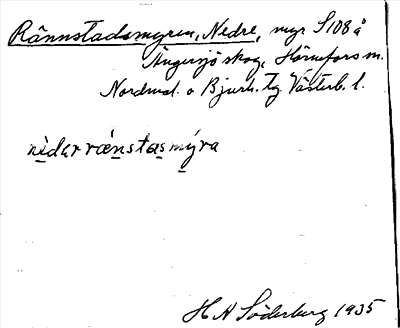 Rännstadsmyren, Nedre, myr S108 å
Ängersjö skog, Hörnefors m.
Nordmal. o Bjurh. tg Västerb. l.
nidər rænstasmýra
H N Söderberg 1935